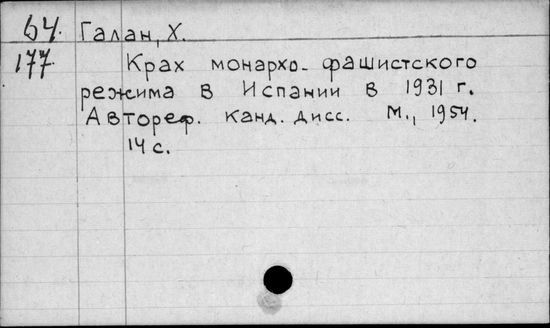 64. Галан, Х.
177 Крах монархо-фашистского
режима в Испании в 1931 г.
Автореф. канд. дисс. М., 1954.
14 с.